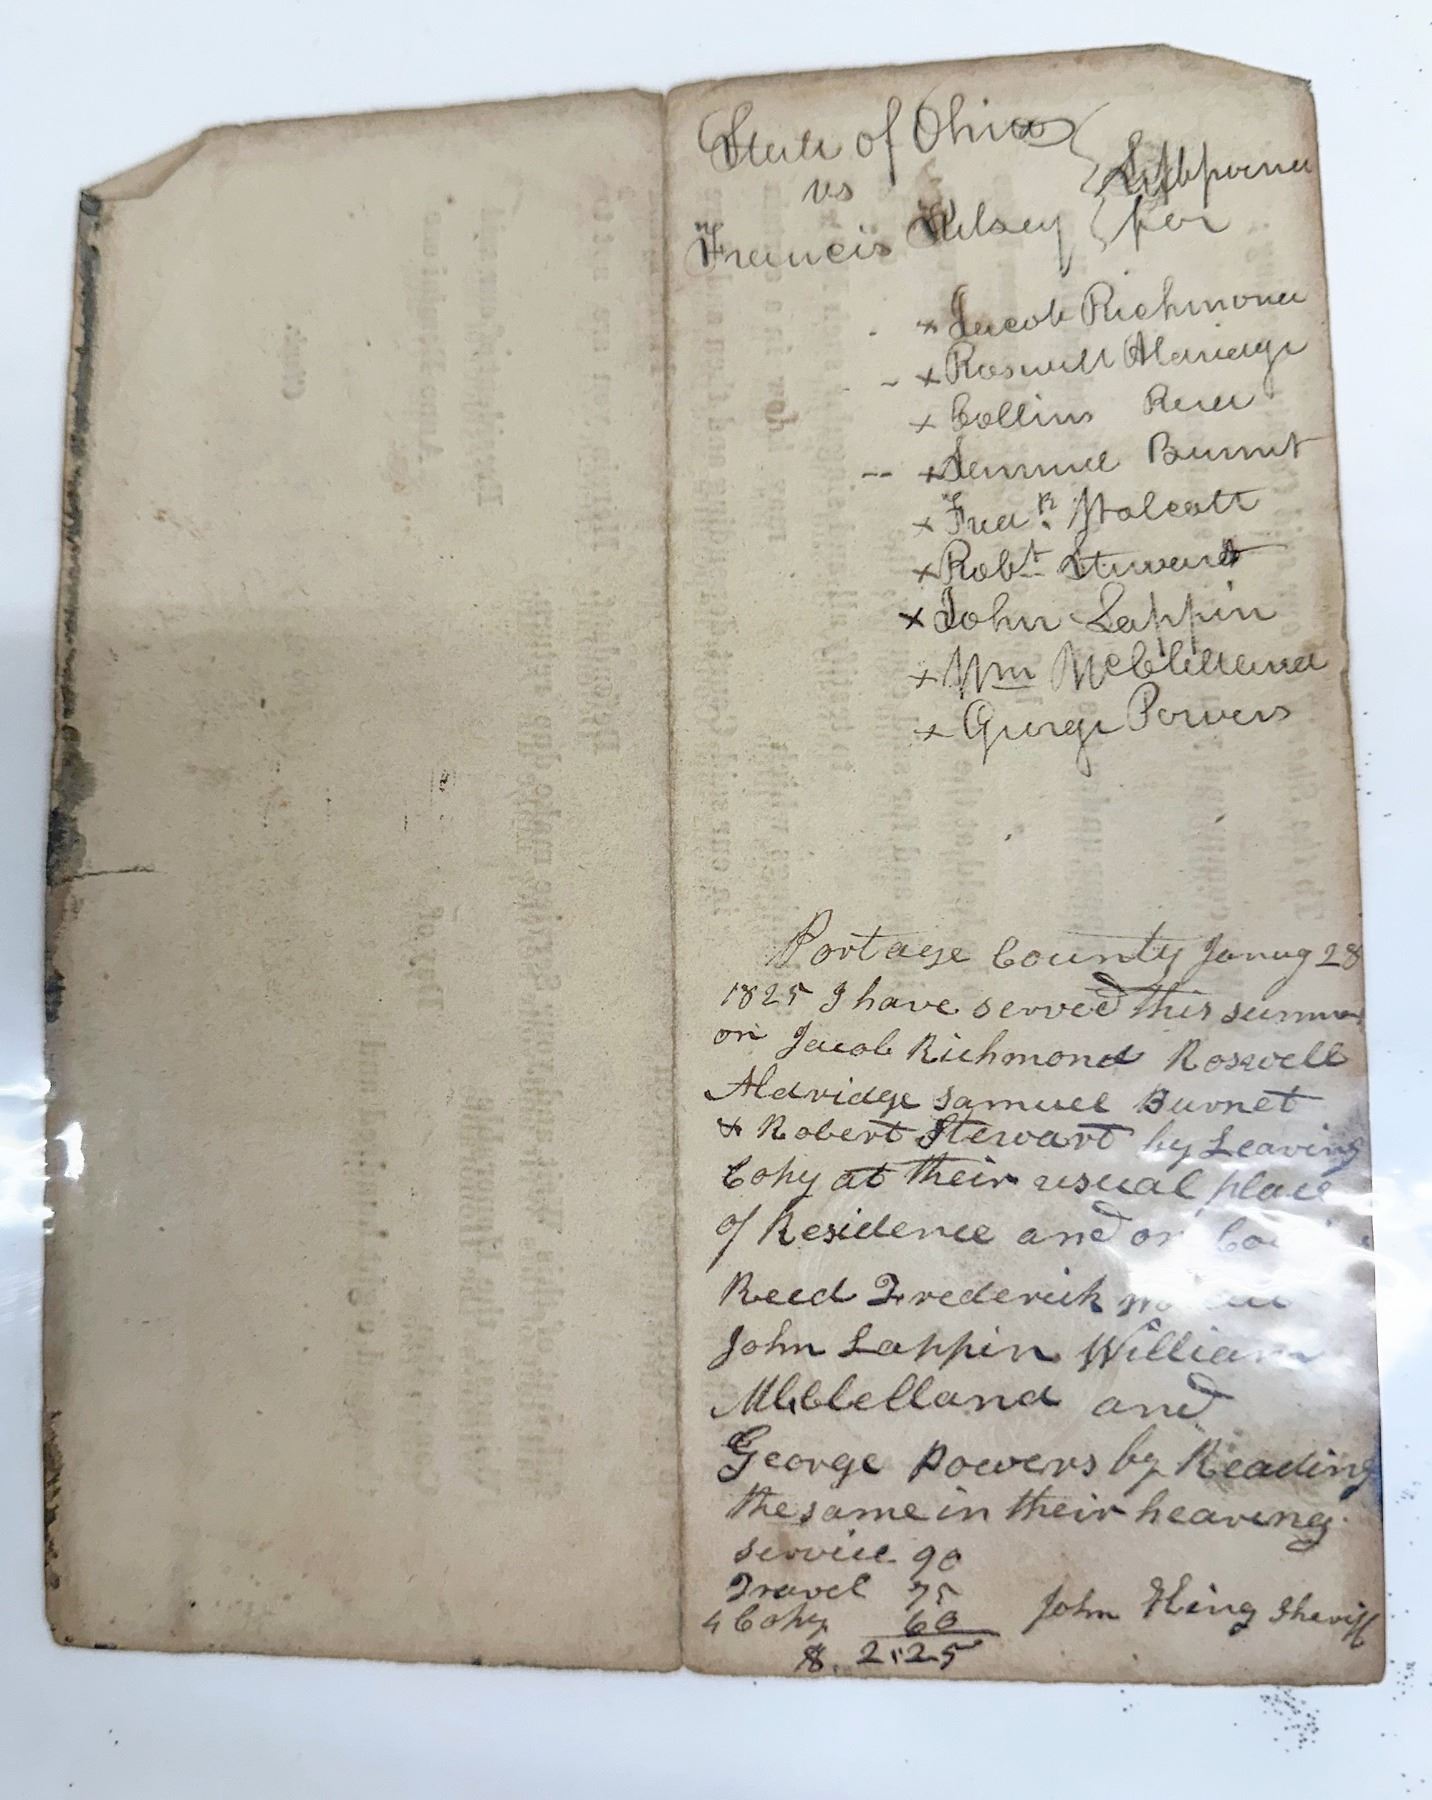 State of Ohio
vs
Francis Kelsey
Subpoena
for
× Jacob Richmond
× Roswell Aldridge
× Collins Reed
× Samuel Burnet
× Fred.k Wolcott
× Robt Stewart
× John Lappin
× Wm McClelland
× George Powers
Portage County Janug 28
1825 I have served this summons
on Jacob Richmond Roswell
Aldridge Samuel Burnet
& Robert Stewart by Leaving
Copy at their usual place
of Residence and on
Reed Frederick
John Lappin William
McClelland and
George Powers by Reading
the same in their hearing.
service 90
Travel 75
4 Copy 60
$ 2.25
John King Sheriff